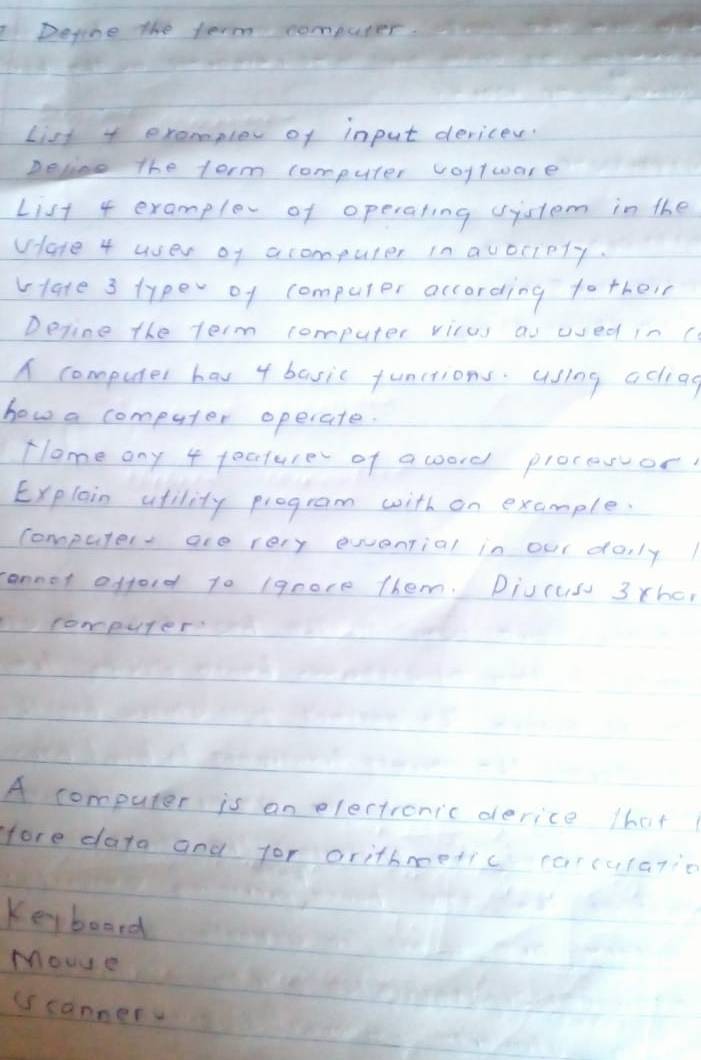 Define the term computer.
List 4 examples of input devices.
Define the term computer software
List 4 examples of operating system in the
State 4 uses of a computer in a society.
State 3 types of computer according to their
Define the term computer virus as used in
A computer has 4 basic functions. using a diag
how a computer operate.
Name any 4 features of a word processor
Explain utility program with an example.
Computers are very essential in our daily
cannot afford to ignore them. Discuss 3 char
computer.
A computer is an electronic device that
store data and for arithmetic calculatio
Keyboard
Mouse
Scanners